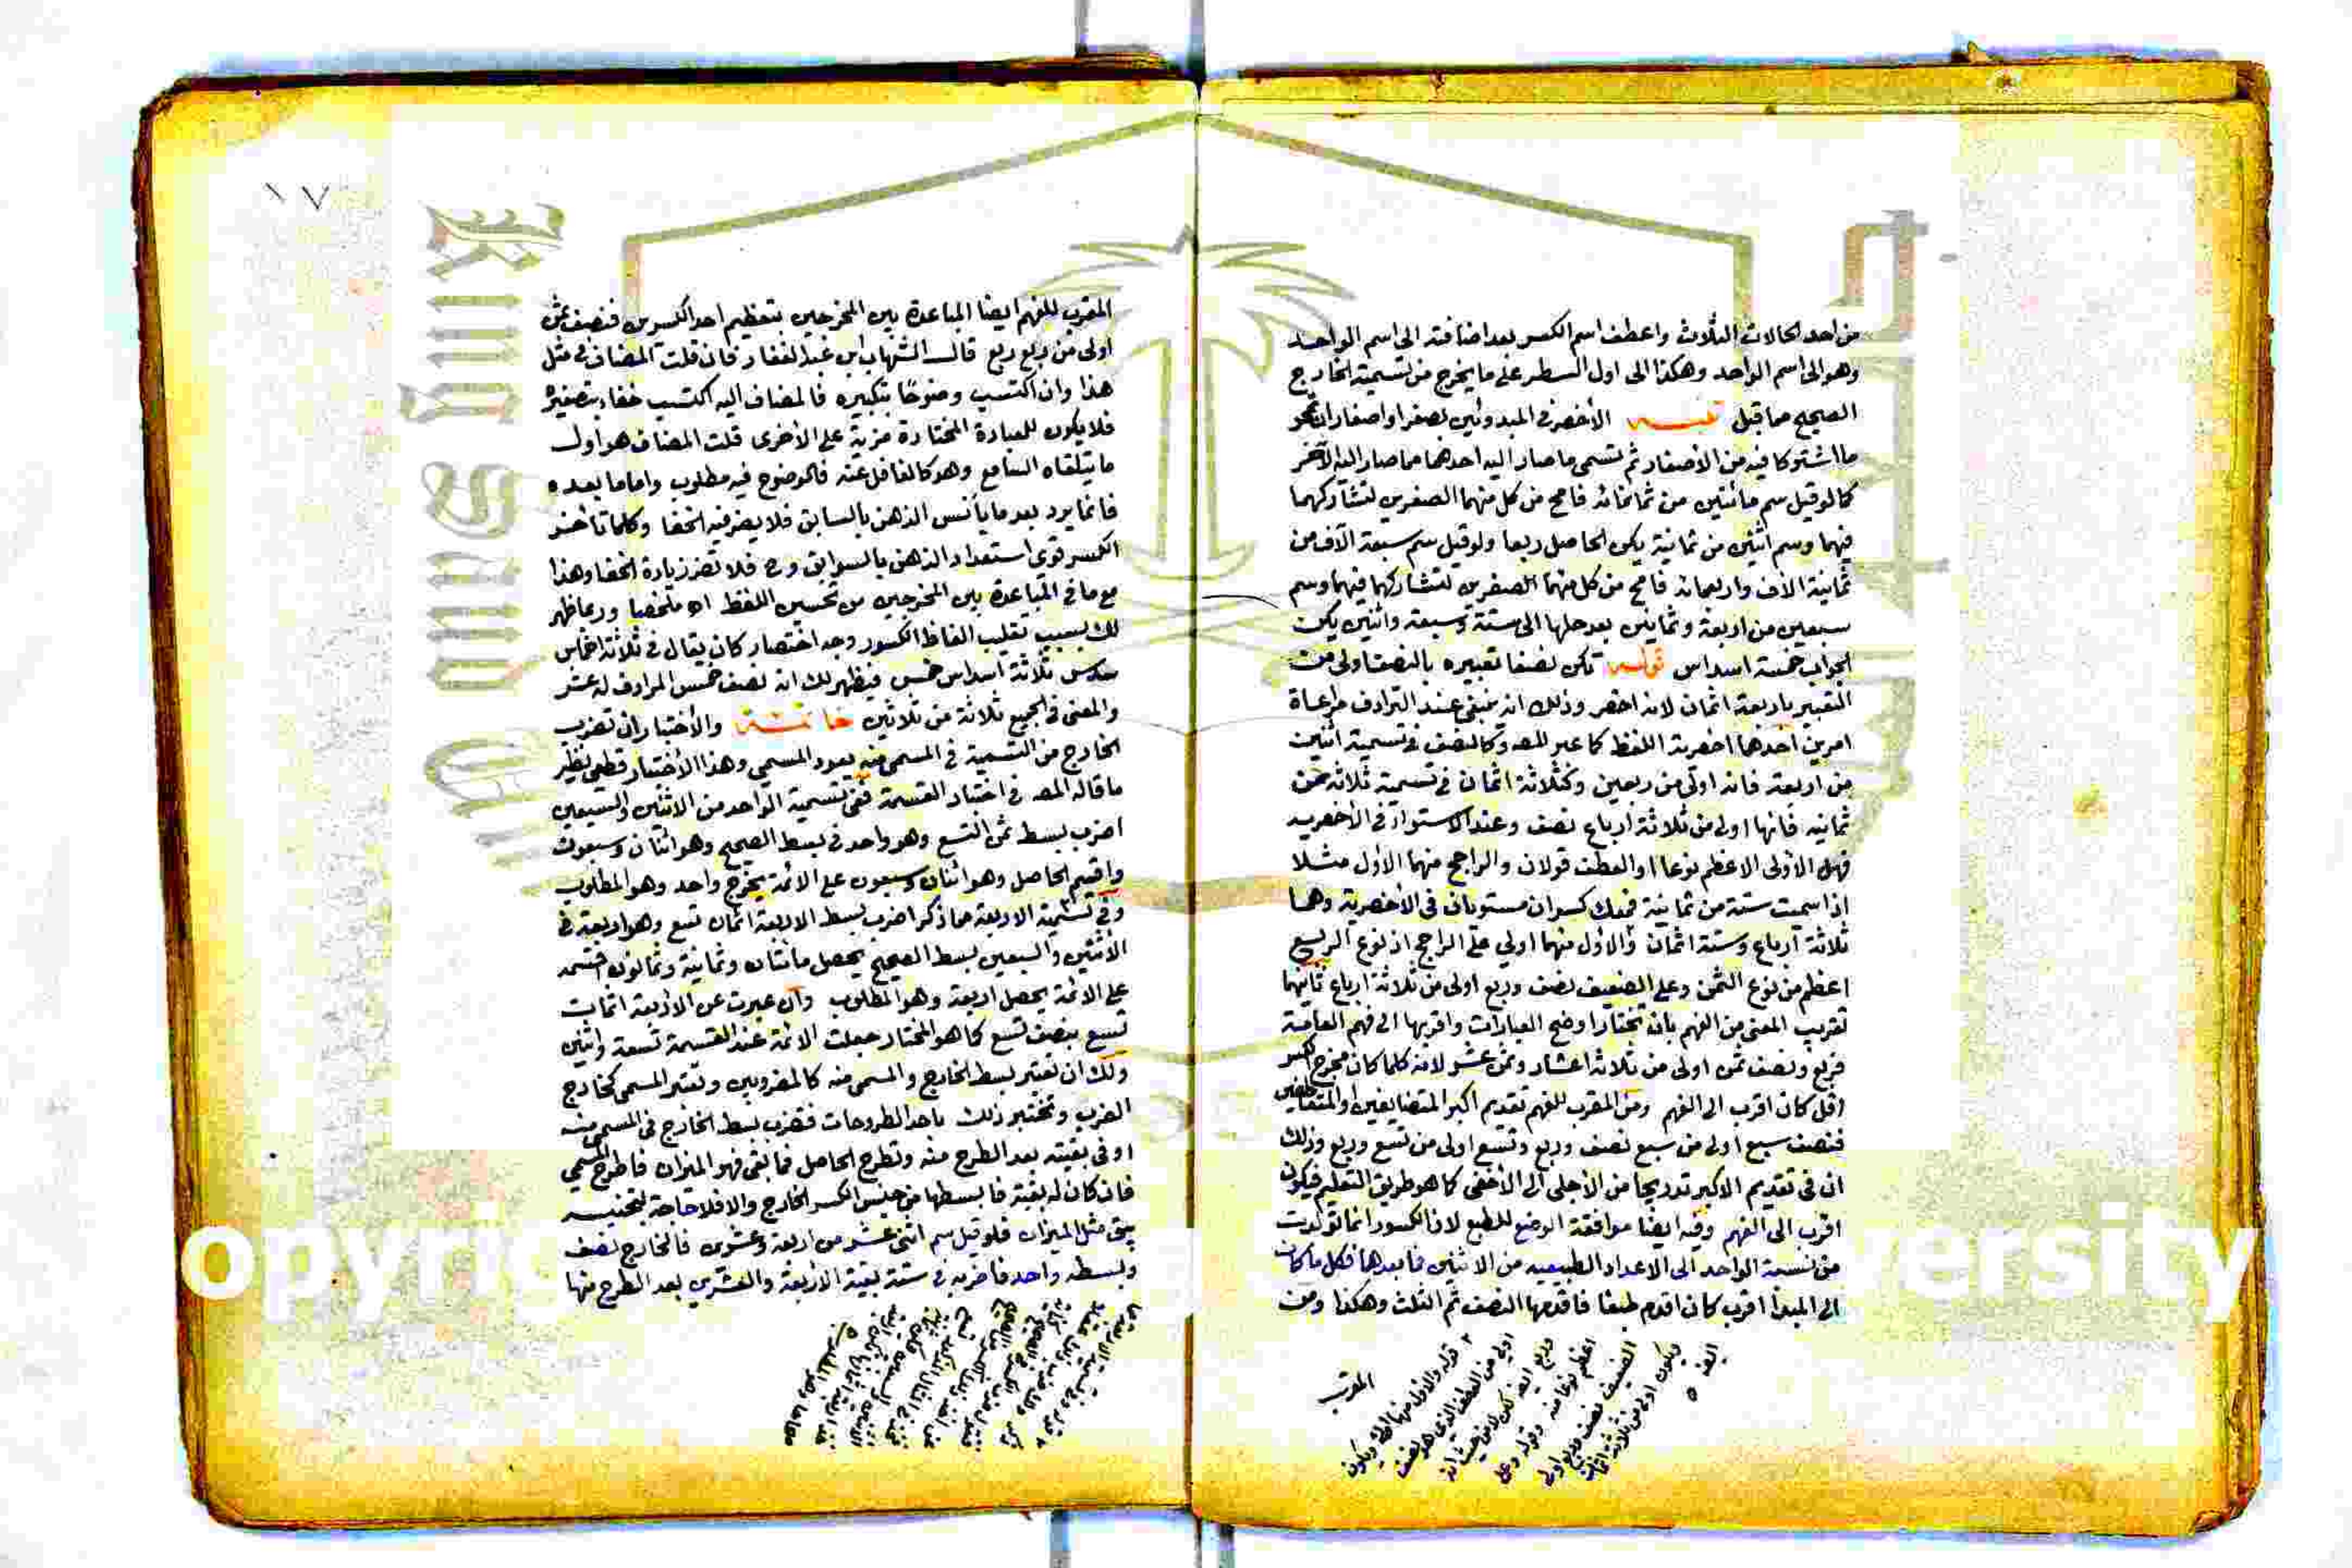 من احد الحالات الثلاث واعطف اسم الكسر بعد اضافته الى اسم الواحد
وهو الى اسم الواحد وهكذا الى اول السطر على ما يخرج من تسمية الخارج
الصحيح مما قبل تنبيه الأخصر في المبدوئين بصفر او اصفار ان تمحو
ما اشتركا فيه من الأصفار ثم تسمى ما صار اليه احدهما مما صار اليه الآخر
كما لو قيل سم مائتين من ثمانمائة فامح من كل منهما الصفرين لتشاركهما
فيهما وسم اثنين من ثمانية يكن الحاصل ربعا ولو قيل سم سبعة آلاف من
ثمانية الاف واربعمائة فامح من كل منهما الصفرين لتشاركهما فيهما وسم
سبعين من اربعة وثمانين بعد حلها الى ستة وسبعة واثنين يكن
الجواب خمسة اسداس قوله تكن نصفا تعبيره بالنصف اولى من
التعبير باربعة اثمان لانه اخصر وذلك انه ينبغي عند الترادف مراعاة
امرين احدهما اخصرية اللفظ كما عبر المصـ وكالنصف في تسمية اثنين
من اربعة فانه اولى من ربعين وكثلاثة اثمان في تسمية ثلاثة من
ثمانية فانها اولى من ثلاثة ارباع نصف وعند الاستواء في الأخصرية
فهل الاولى الاعظم نوعا او العطف قولان والراجح منهما الأول مثلا
اذا سميت ستة من ثمانية فمعك كسران مستويان في الأخصرية وهما
ثلاثة ارباع وستة اثمان والاول منهما اولى على الراجح اذ نوع الربع
اعظم من نوع الثمن وعلى الضعيف نصف وربع اولى من ثلاثة ارباع ثانيهما
تقريب المعنى من الفهم بان تختار اوضح العبارات واقربها الى فهم العامة
فربع ونصف ثمن اولى من ثلاثة اعشار وثمن عشر لانه كلما كان مخرج الكسر
اقل كان اقرب الى الفهم ومن المقرب للفهم تقديم اكبر المتضايفين او المتعاطفين
فنصف سبع اولى من سبع نصف وربع وتسع اولى من تسع وربع وذلك
ان في تقديم الاكبر تدريجا من الأجلى الى الأخفى كما هو طريق التعليم فيكون
اقرب الى الفهم وفيه ايضا موافقة الوضع للطبع لان الكسور انما تولدت
من نسبة الواحد الى الاعداد الطبيعية من الاثنين فما بعدها فكل ما كان
الى المبدأ اقرب كان اقدم طبعا فاقدمها النصف ثم الثلث وهكذا ومن
المقرب
قوله والاول منهما الخ ويكون
اولى من العطف الذي هو نصف
وربع
اعظم نوعا منه وقوله وعلى
الضعيف نصف وربع اولى
ويكون اولى من ثلاثة اثمان
المقرب للفهم ايضا المباعدة بين المخرجين بتعظيم احد الكسرين فنصف ثمن
اولى من ربع ربع قال الشهاب ابن عبد الغفار فان قلت المضاف في مثل
هذا وان اكتسب وضوحا بتكبيره فالمضاف اليه اكتسب خفاء بتصغيره
فلا يكون للعبارة المختارة مزية على الأخرى قلت المضاف هو اول
ما يتلقاه السامع وهو كالغافل عنه فالوضوح فيه مطلوب واما ما بعده
فانما يرد بعد ما يأنس الذهن بالسابق فلا يضر فيه الخفا وكلما تأخر
الكسر قوى استعداد الذهن بالسوابق وح فلا تضر زيادة الخفا وهذا
مع ما في المباعدة بين المخرجين من تحسين اللفظ اه ملخصا وربما ظهر
لك بسبب تقليب الفاظ الكسور وجه اختصار كان يقال في ثلاثة اخماس
سدس ثلاثة اسداس خمس فيظهر لك انه نصف خمس المرادف له عشر
والمعنى في الجميع ثلاثة من ثلاثين خاتمة والأختبار ان تضرب
الخارج من التسمية في المسمى منه يعود المسمى وهذا الأختبار قطعى نظير
ما قاله المصـ في اختبار القسمة ففي تسمية الواحد من الاثنين والسبعين
اضرب بسط ثمن التسع وهو واحد في بسط الصحيح وهو اثنان وسبعون
واقسم الحاصل وهو اثنان وسبعون على الائمة يخرج واحد وهو المطلوب
وفي تسمية الاربعة مما ذكر اضرب بسط الاربعة اثمان تسع وهو اربعة في
الاثنين والسبعين بسط الصحيح يحصل مائتان وثمانية وثمانون اقسمه
على الائمة يحصل اربعة وهو المطلوب وان عبرت عن الاربعة اثمان
تسع بنصف تسع كما هو المختار جعلت الائمة عند القسمة تسعة واثنين
ولك ان تعتبر بسط الخارج والمسمى منه كالمضروبين وتعتبر المسمى كخارج
الضرب وتختبر ذلك باحد الطروحات فتضرب بسط الخارج في المسمى منه
او في بقيته بعد الطرح منه وتطرح الحاصل فما بقى فهو الميزان فاطرح المسمى
فان كان له بقية فابسطها من جنس الكسر الخارج والا فلا حاجة لتجنيسه
يبقى مثل الميزان فلو قيل سم اثنى عشر من اربعة وعشرين فالخارج نصف
وبسطه واحد فاضربه في ستة بقية الاربعة والعشرين بعد الطرح منها